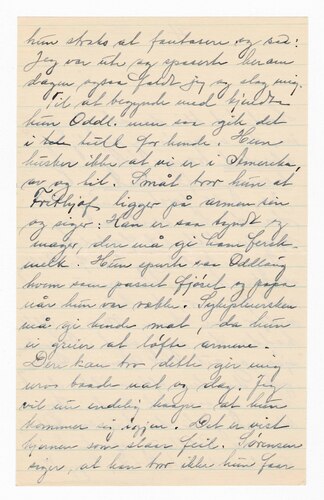 hun straks at fantasere og sa:
Jeg var ute og spaserte her om
dagen ogsaa faldt jeg og slog mig.
Til at begynde med kjendte
hun Oddl. men saa gik det
i tull for hende. Hun
husker ikke at vi er i Amerika,
av og til. Somåt tror hun at
Frithjof ligger på armen sin
og siger: Han er saa tyndt og
mager, dere må gi ham fersk
melk. Hun spurte saa Oddlaug
hvem som passet fjöset og papa
når hun var vække. Sykepleiersken
må gi hende mat, da hun
ei greier at löfte armene.
Dere kan tro dette gir mig
uros baade nat og dag. Jeg
vil nu endelig haape at hun
kommer sig igjen. Det er vist
hjernen som slaar feil. Sörensen
siger, at han tror ikke hun faar